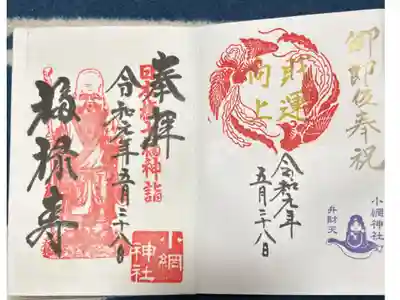 奉拝
日本橋七福神詣
令和元年五月二十八日
福禄寿
小網
神社
御即位奉祝
財運
向上
令和元年
五月二十八日
小網神社
弁財天